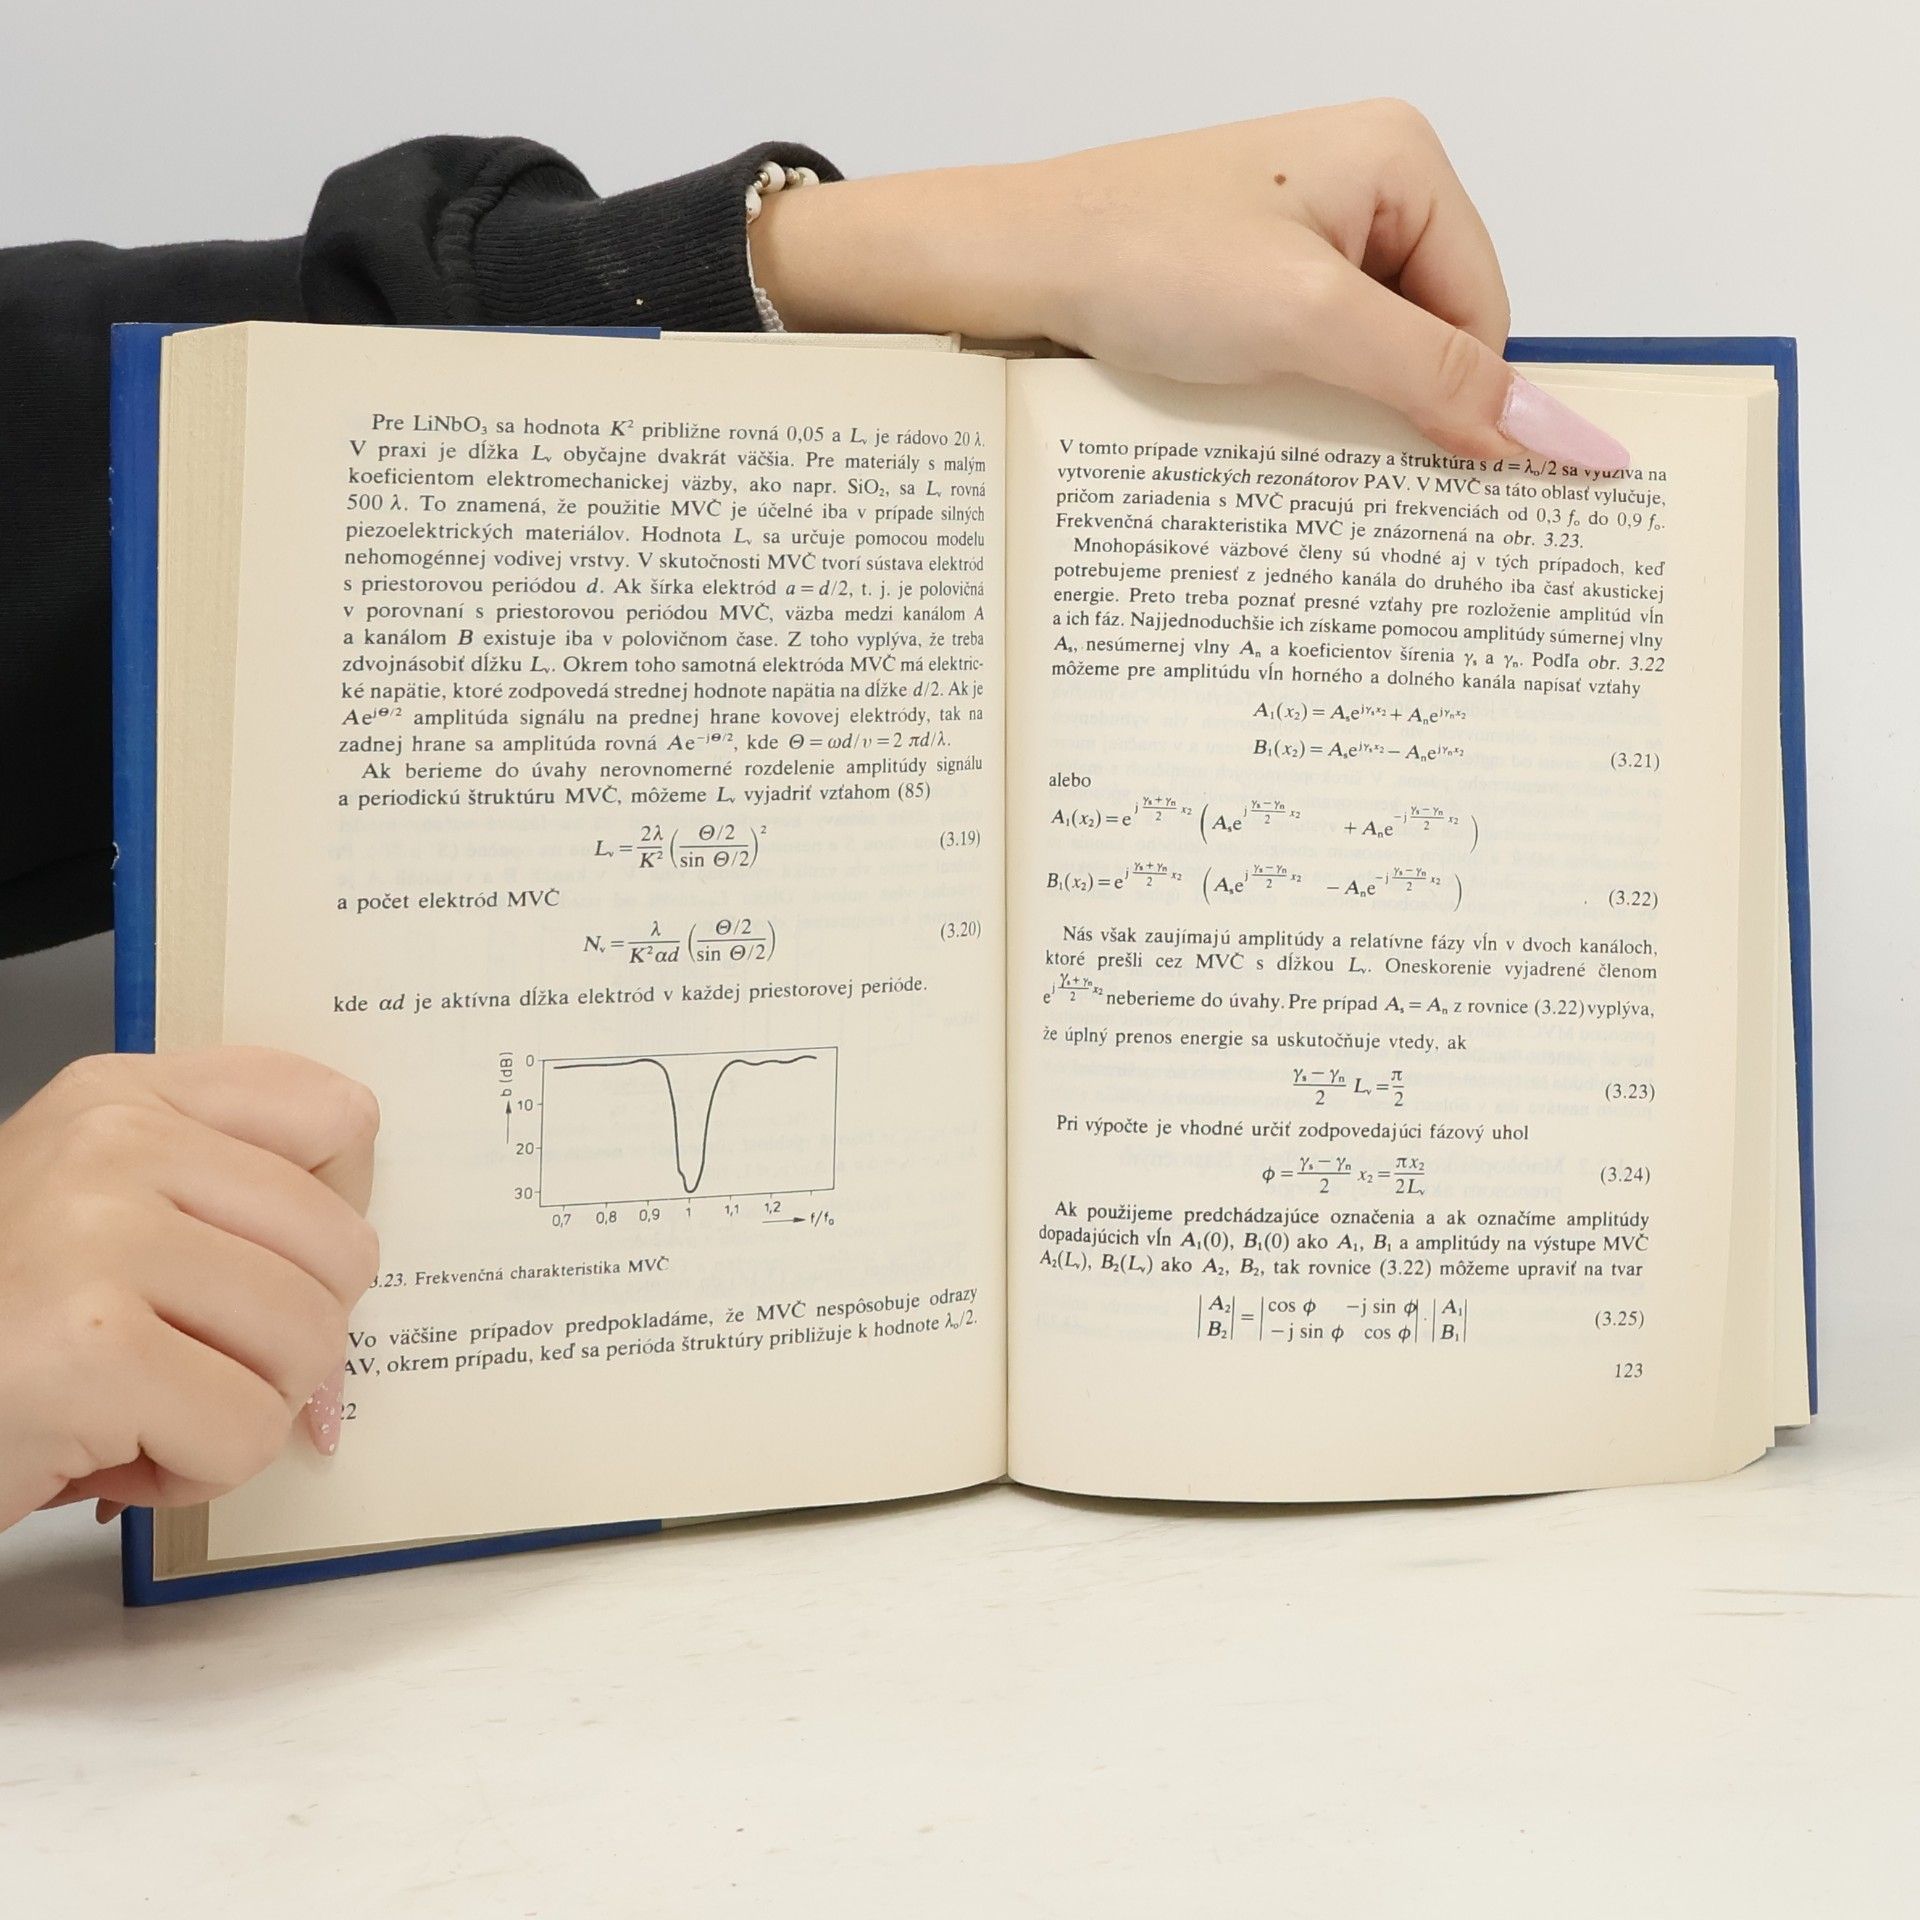 Pre LiNbO₃ sa hodnota K² približne rovná 0,05 a Lᵥ je rádovo 20 λ.
V praxi je dĺžka Lᵥ obyčajne dvakrát väčšia. Pre materiály s malým
koeficientom elektromechanickej väzby, ako napr. SiO₂, sa Lᵥ rovná
500 λ. To znamená, že použitie MVČ je účelné iba v prípade silných
piezoelektrických materiálov. Hodnota Lᵥ sa určuje pomocou modelu
nehomogénnej vodivej vrstvy. V skutočnosti MVČ tvorí sústava elektród
s priestorovou periódou d. Ak šírka elektród a = d/2, t. j. je polovičná
v porovnaní s priestorovou periódou MVČ, väzba medzi kanálom A
a kanálom B existuje iba v polovičnom čase. Z toho vyplýva, že treba
zdvojnásobiť dĺžku Lᵥ. Okrem toho samotná elektróda MVČ má elektric-
ké napätie, ktoré zodpovedá strednej hodnote napätia na dĺžke d/2. Ak je
Ae^{jΘ/2} amplitúda signálu na prednej hrane kovovej elektródy, tak na
zadnej hrane sa amplitúda rovná Ae^{−jΘ/2}, kde Θ = ωd/v = 2 πd/λ.
Ak berieme do úvahy nerovnomerné rozdelenie amplitúdy signálu
a periodickú štruktúru MVČ, môžeme Lᵥ vyjadriť vzťahom (85)
Lᵥ = 2λ/K² (Θ/2 / sin Θ/2)² (3.19)
a počet elektród MVČ
Nᵥ = λ/K²αd (Θ/2 / sin Θ/2) (3.20)
kde αd je aktívna dĺžka elektród v každej priestorovej perióde.
b (dB)
0
10
20
30
0,7 0,8 0,9 1 1,1 1,2 f/f₀
3.23. Frekvenčná charakteristika MVČ
Vo väčšine prípadov predpokladáme, že MVČ nespôsobuje odrazy
AV, okrem prípadu, keď sa perióda štruktúry približuje k hodnote λ₀/2.
22
V tomto prípade vznikajú silné odrazy a štruktúra s d = λ₀/2 sa využíva na
vytvorenie akustických rezonátorov PAV. V MVČ sa táto oblasť vylučuje,
pričom zariadenia s MVČ pracujú pri frekvenciách od 0,3 f₀ do 0,9 f₀.
Frekvenčná charakteristika MVČ je znázornená na obr. 3.23.
Mnohopásikové väzbové členy sú vhodné aj v tých prípadoch, keď
potrebujeme preniesť z jedného kanála do druhého iba časť akustickej
energie. Preto treba poznať presné vzťahy pre rozloženie amplitúd vĺn
a ich fáz. Najjednoduchšie ich získame pomocou amplitúdy súmernej vlny
Aₛ, nesúmernej vlny Aₙ a koeficientov šírenia γₛ a γₙ. Podľa obr. 3.22
môžeme pre amplitúdu vĺn horného a dolného kanála napísať vzťahy
A₁(x₂) = Aₛe^{jγₛx₂} + Aₙe^{jγₙx₂}
B₁(x₂) = Aₛe^{jγₛx₂} − Aₙe^{jγₙx₂} (3.21)
alebo
A₁(x₂) = e^{j (γₛ+γₙ)/2 x₂} (Aₛe^{j (γₛ−γₙ)/2 x₂} + Aₙe^{−j (γₛ−γₙ)/2 x₂})
B₁(x₂) = e^{j (γₛ+γₙ)/2 x₂} (Aₛe^{j (γₛ−γₙ)/2 x₂} − Aₙe^{−j (γₛ−γₙ)/2 x₂}) (3.22)
Nás však zaujímajú amplitúdy a relatívne fázy vĺn v dvoch kanáloch,
ktoré prešli cez MVČ s dĺžkou Lᵥ. Oneskorenie vyjadrené členom
e^{j (γₛ+γₙ)/2 x₂} neberieme do úvahy. Pre prípad Aₛ = Aₙ z rovnice (3.22) vyplýva,
že úplný prenos energie sa uskutočňuje vtedy, ak
(γₛ − γₙ)/2 Lᵥ = π/2 (3.23)
Pri výpočte je vhodné určiť zodpovedajúci fázový uhol
ϕ = (γₛ − γₙ)/2 x₂ = πx₂/2Lᵥ (3.24)
Ak použijeme predchádzajúce označenia a ak označíme amplitúdy
dopadajúcich vĺn A₁(0), B₁(0) ako A₁, B₁ a amplitúdy na výstupe MVČ
A₂(Lᵥ), B₂(Lᵥ) ako A₂, B₂, tak rovnice (3.22) môžeme upraviť na tvar
|A₂| = |cos ϕ −j sin ϕ| . |A₁|
|B₂| |−j sin ϕ cos ϕ| |B₁| (3.25)
123